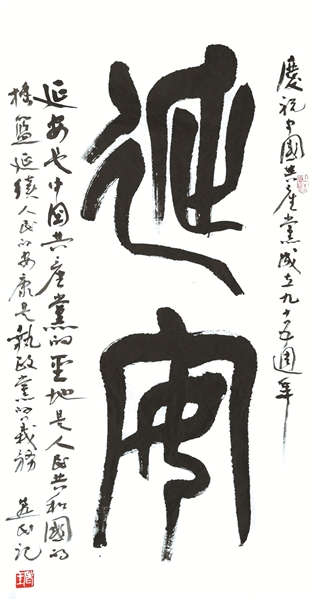 慶祝中國共產黨成立九十五週年
延安
延安乃中国共產黨的聖地是人民共和國的
搖籃延續人民的安康是執政黨的義務 
民記